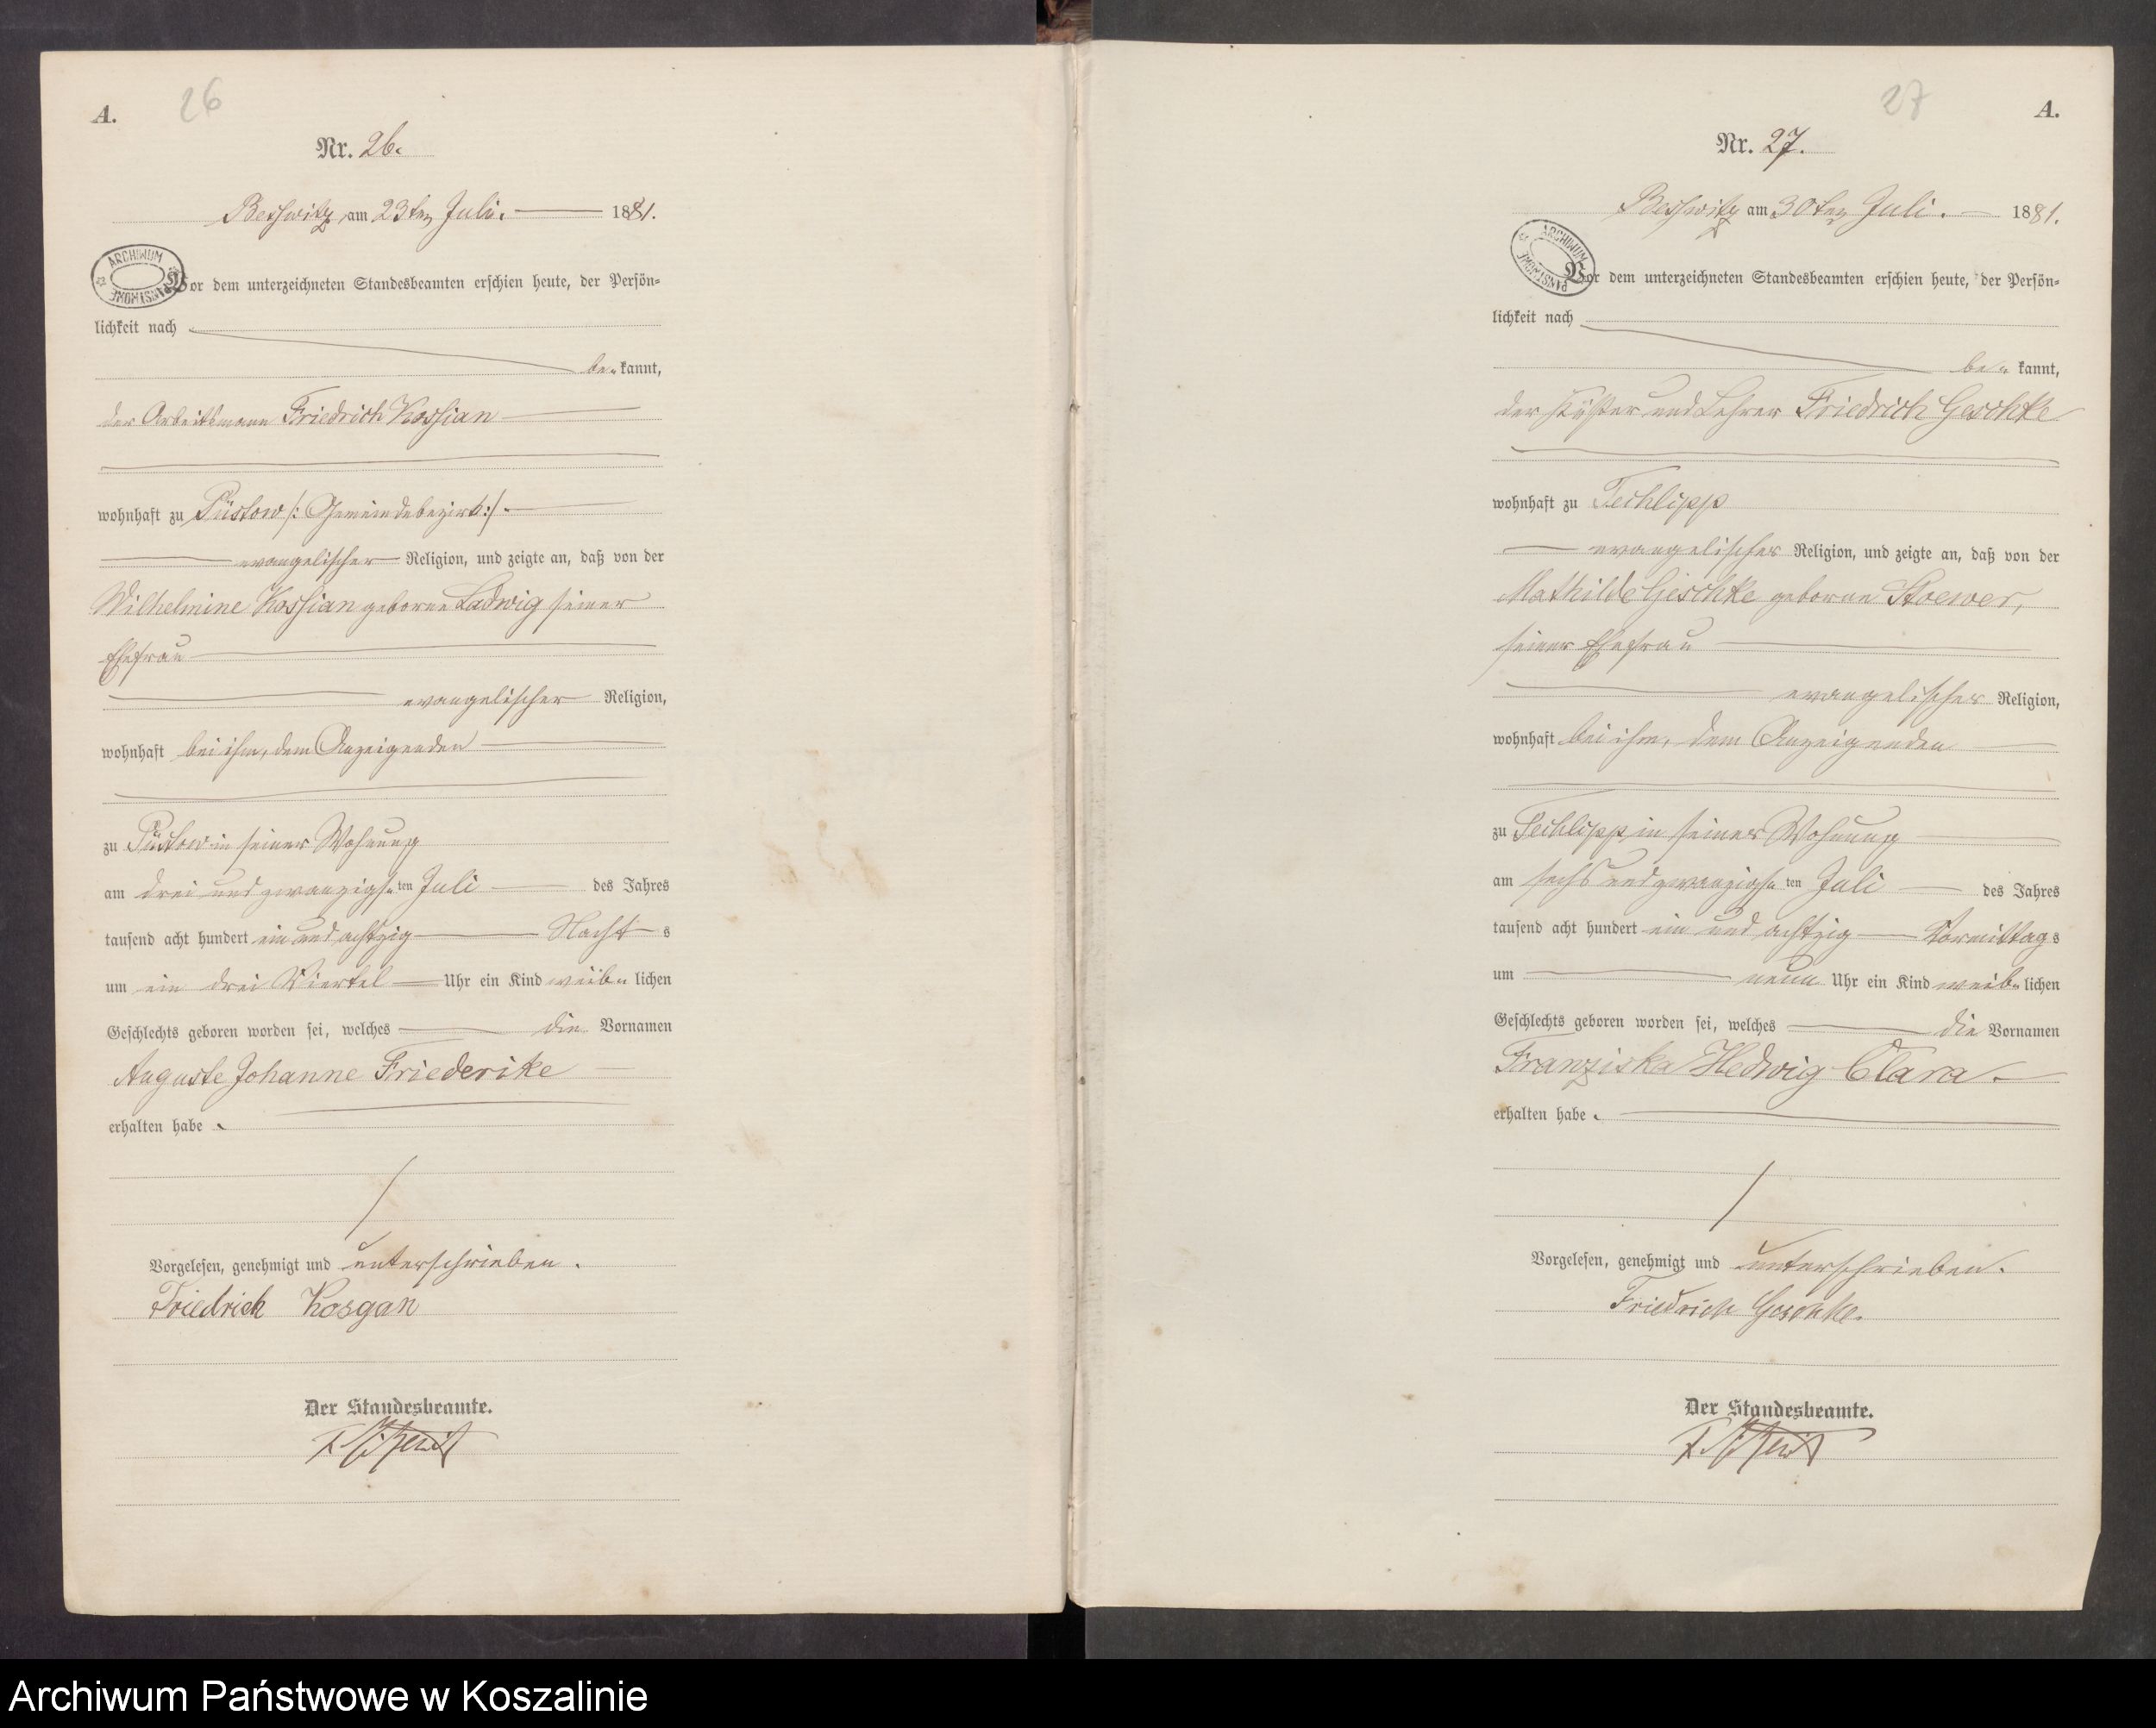 26
A.
Nr. 26.
Beßwitz am 23ten Juli. 1881.
ARCHIWUM
PAŃSTWOWE
Vor dem unterzeichneten Standesbeamten erschien heute, der Persön=
lichkeit nach
be= kannt,
der Arbeitsmann Friedrich Kossian
wohnhaft zu Püstow /: Gemeindebezirk :/.
evangelischer Religion, und zeigte an, daß von der
Wilhelmine Kossian geborne Ladwig seiner
Ehefrau
evangelischer Religion,
wohnhaft bei ihm, dem Anzeigenden
zu Püstow in seiner Wohnung
am drei und zwanzigs=ten Juli des Jahres
tausend acht hundert ein und achtzig Nacht s
um ein drei Viertel Uhr ein Kind weib= lichen
Geschlechts geboren worden sei, welches die Vornamen
Auguste Johanne Friederike
erhalten habe.
Vorgelesen, genehmigt und unterschrieben.
Friedrich Kosgan
Der Standesbeamte.
27
A.
Nr. 27.
Beßwitz am 30ten Juli. 1881.
ARCHIWUM
PAŃSTWOWE
Vor dem unterzeichneten Standesbeamten erschien heute, der Persön=
lichkeit nach
be= kannt,
der Küster und Lehrer Friedrich Geschke
wohnhaft zu Techlipp
evangelischer Religion, und zeigte an, daß von der
Mathilde Geschke geborne Stoewer,
seiner Ehefrau
evangelischer Religion,
wohnhaft bei ihm, dem Anzeigenden
zu Techlipp in seiner Wohnung
am sechs und zwanzigs= ten Juli des Jahres
tausend acht hundert ein und achtzig Vormittag s
um neun Uhr ein Kind weib= lichen
Geschlechts geboren worden sei, welches die Vornamen
Franziska Hedwig Clara.
erhalten habe.
Vorgelesen, genehmigt und unterschrieben.
Friedrich Geschke.
Der Standesbeamte.
Archiwum Państwowe w Koszalinie